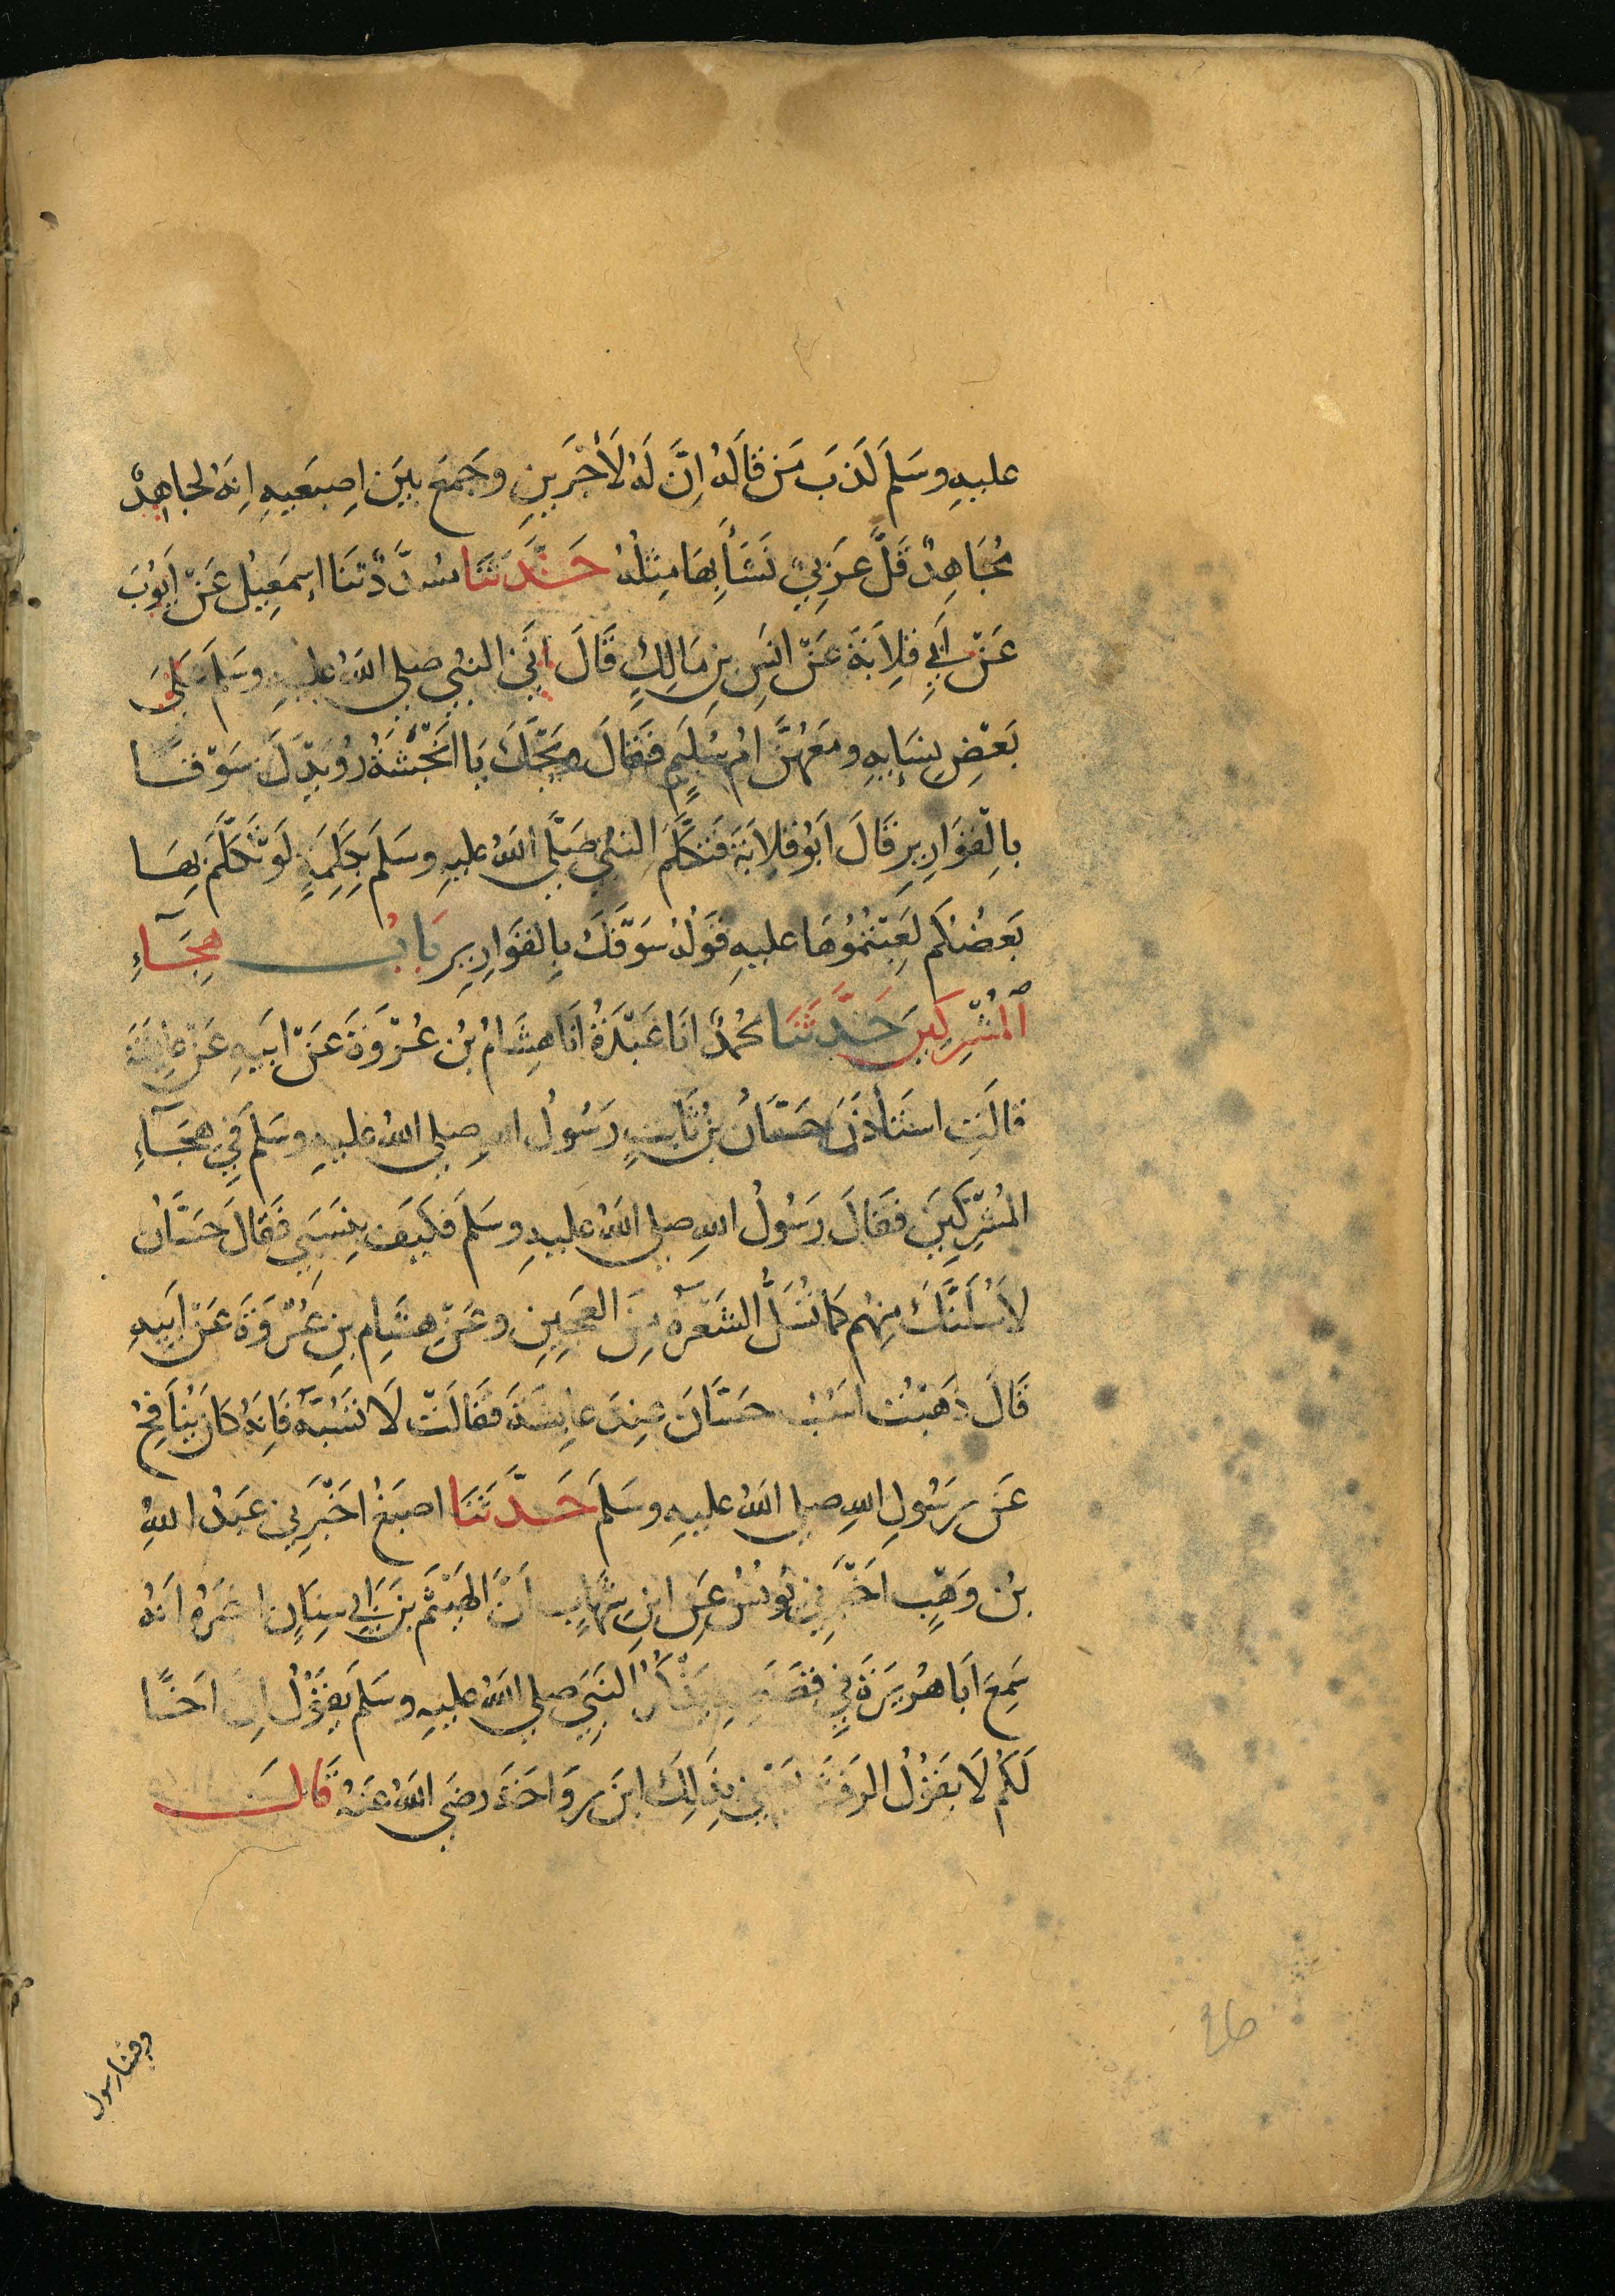 عليهِ وسَلمَ لَذَبَ مَن قالَهُ اِنَّ لَهُ لَأَجْرَينِ وجَمَعَ بَينَ اِصبَعَيهِ اِنهُ لجاهِدٌ
مُجَاهِدٌ قَلَّ عَرَبِيٌّ نَشَأَ بِهَا مِثلُهُ حَدَّثَنَا مسُدَّدٌ ثنَا اِسمَعِيلُ عَنْ اَيوُبَ
عَنْ اَبِي قِلاَبَةَ عَنْ انَسِ بنِ مَالِكٍ قَالَ اَتَى النبيُ صلى اللهُ عليهِ وسَلمَ عَلىَ
بَعْضِ نِسَايِهِ ومَعَهُنَّ اُم سُلَيمٍ فَقَالَ وَيحَكَ يَا اَنجَشَةُ رُوَيدَكَ سَوْقًا
بِالْقوَارِيرِ قَالَ اَبُو قلاَبَةَ فَتَكَلَّمَ النبيُ صَلَّى اللهُ عليهِ وسَلمَ بِكَلِمَةٍ لَوتَكَلَّمَ بِهَا
بَعضُكم لَعِبتُمُوهَا عليهِ قَولُهُ سَوْقَكَ بِالقوَارِيرِ بَابُ هِجَآءِ
المُشْرِكِينَ حَدَّثَنَا محُمدٌ انَا عَبْدَةُ انَا هِشَامُ بْنُ عُرْوَةَ عَنْ اَبيهِ عَنْ عايِشَةَ
قالَتِ استَأذَنَ حَسَّانُ بنُ ثَابِتٍ رَسُولَ اللهِ صلى اللهُ عليهِ وسَلمَ في هِجَآءِ
المُشْرِكِينَ فَقَالَ رَسُولُ اللهِ صلى اللهُ عليهِ وسَلمَ فكَيَف بِنَسَبِي فَقَالَ حَسَّانُ
لاَسُلَّنَّكَ مِنهُم كمَا تُسَلُّ الشَعَرَةُ مِنَ العَجِينِ وعَنْ هشَامِ بنِ عُرْوَةَ عَنْ اَبيهِ
قَالَ ذَهَبْتُ اَسُبُ حَسَّانَ عِندَ عايِشَةَ فقَالَتْ لَا تَسُبَّهُ فَاِنهُ كانَ يُنَافِحُ
عَن رَسُولِ اللهِ صلى اللهُ عليهِ وسَلمَ حَدَّثَنَا اصبَغُ اخَبَرَنِي عَبدُ اللهِ
بنُ وَهْبٍ اخَبَرَنِي يُونسُ عَنِ ابنِ شِهَابٍ اَنَّ الهَيثَمَ بنَ اَبِي سِنَانٍ اخبَرَهُ اَنهُ
سَمِعَ اَبَا هُرَيرَةَ فِي قصَصِهِ يَذكُرُ النَبيَ صلى اللهُ عليهِ وسَلمَ يقَوُلُ اِنَّ اَخًا
لَكُم لَا يَقوُلُ الرَفَثَ يعَنِي بِذَلِكَ ابنَ رَوَاحَةَ رضَى اللهُ عَنهُ قَالَ
وفينا رسول